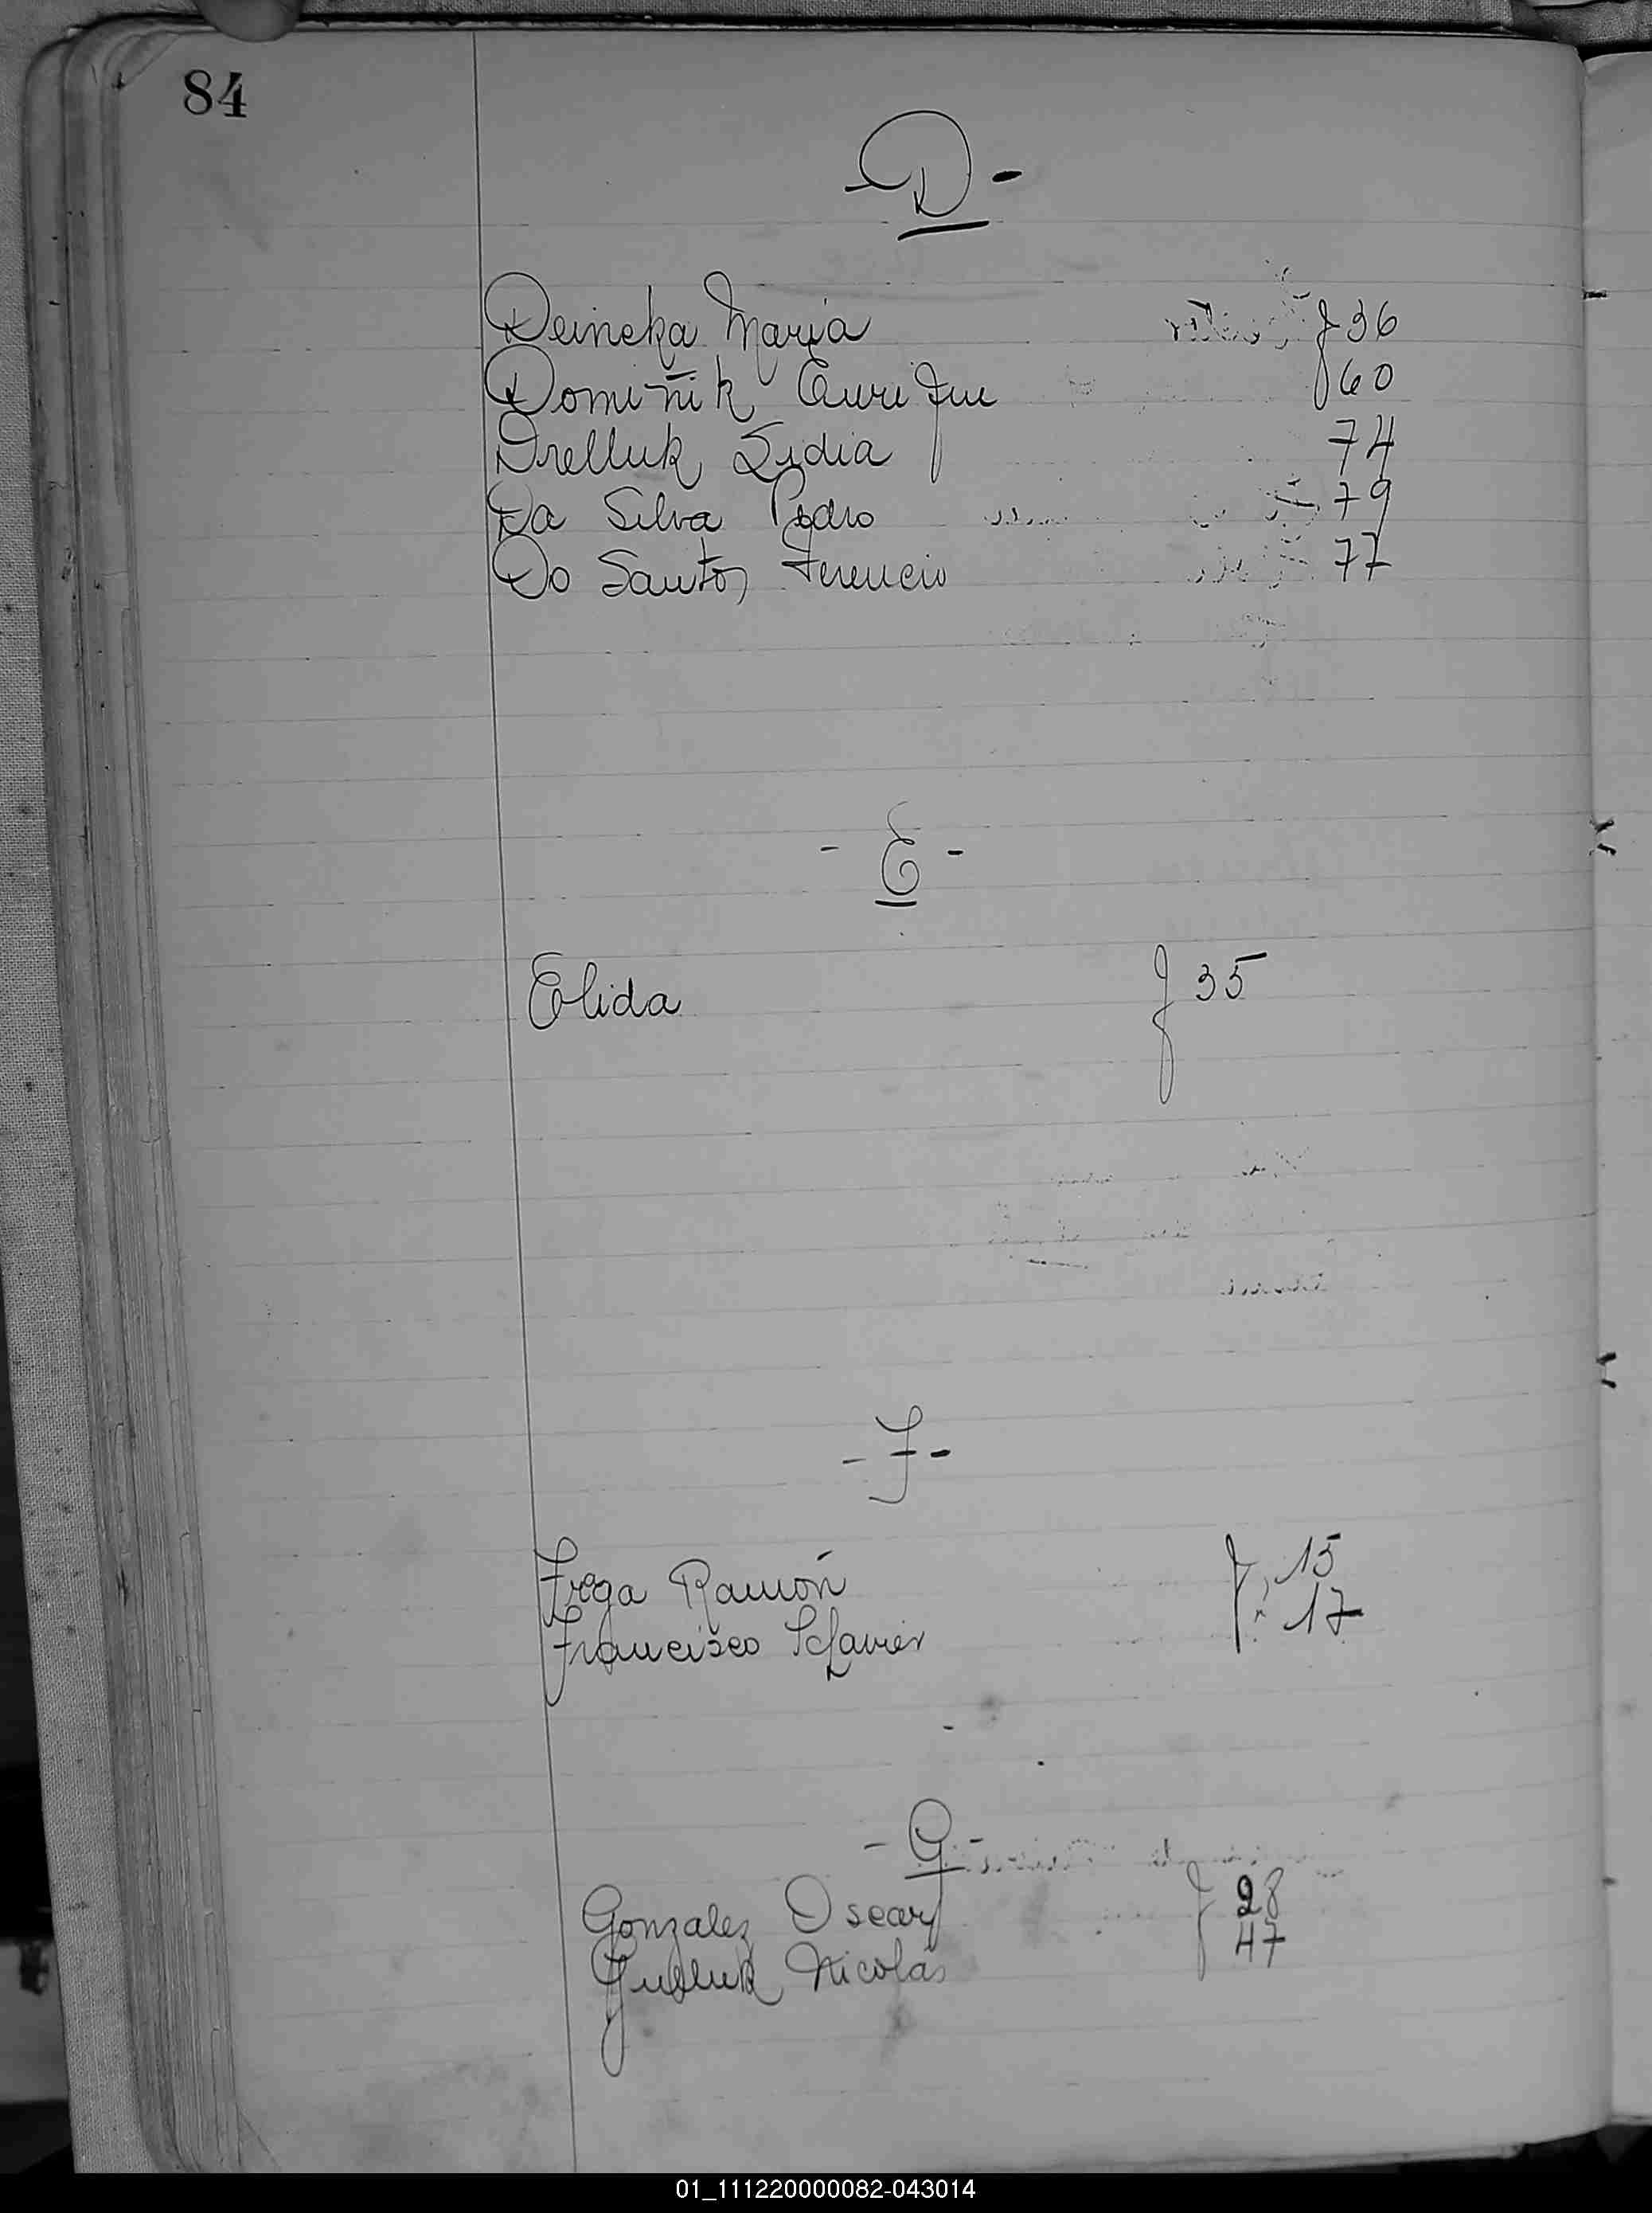 84
- D -
Deincka Maria f 36
Dominik Enrique f 60
Drelluk Lidia 74
Da Silva Pedro 79
Do Santos Terencio 77
- E -
Elida f 35
- F -
Fraga Ramón f. 15
Francisco Javier f. 17
- G -
Gonzalez Oscar f 28
Nicolás 47
01_111220000082-043014